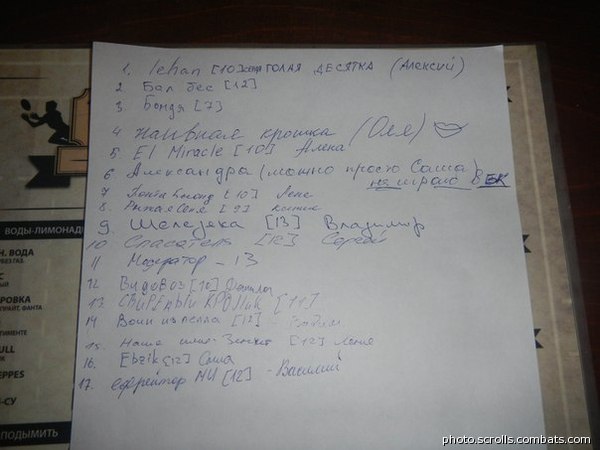 1. lehan [10] ГОЛАЯ ДЕСЯТКА (Алексий)
2 Бал бес [12]
3. Бондя [7]
4 наивная крошка (Оля)
5. El Miracle [10] Алена
6 Александра (можно просто Саша)
не играю в БК
7 [10] Лена
8. Рыжая Соня [9] Костик
9 Шелезяка [13] Владимир
10. Спасатель [12] Сергей
11 Модератор - 13
12 Видовоз [10] Данила
13. СВИРЕПЫЙ КРОЛИК [11]
14 Воин из пепла [12] - Вадим
15. Наше имя-Зенит [12] Леня
16. Ebzik [12] Саша
17. ефрейтор МИ [12] - Василий
ВОДЫ-ЛИМОНАД
Н. ВОДА
РОВКА
ФАНТА
ТИМЕНТЕ
ULL
EPPES
И-СУ
ПОДЫМИТЬ
photo.scrolls.combats.com